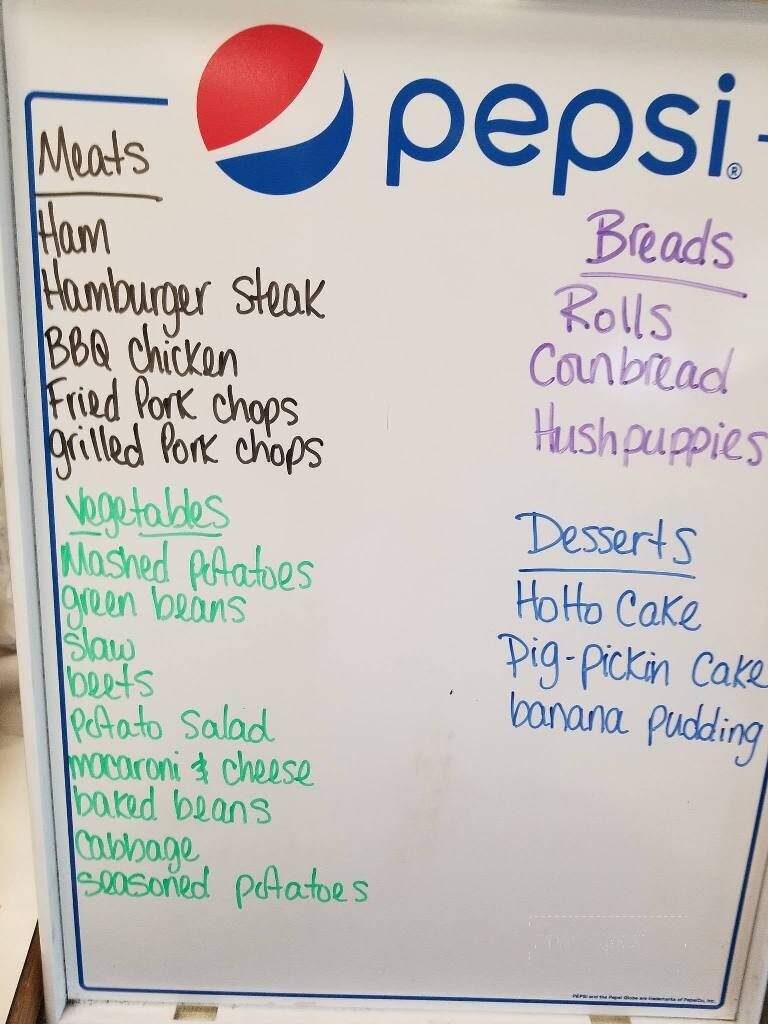 pepsi®
Meats
Ham
Hamburger steak
BBQ chicken
Fried Pork chops
grilled Pork chops
vegetables
Mashed potatoes
green beans
slaw
beets
potato salad
macaroni & cheese
baked beans
cabbage
seasoned potatoes
Breads
Rolls
Cornbread
Hushpuppies
Desserts
HoHo Cake
Pig-pickin Cake
banana pudding
PEPSI and the Pepsi Globe are trademarks of PepsiCo, Inc.